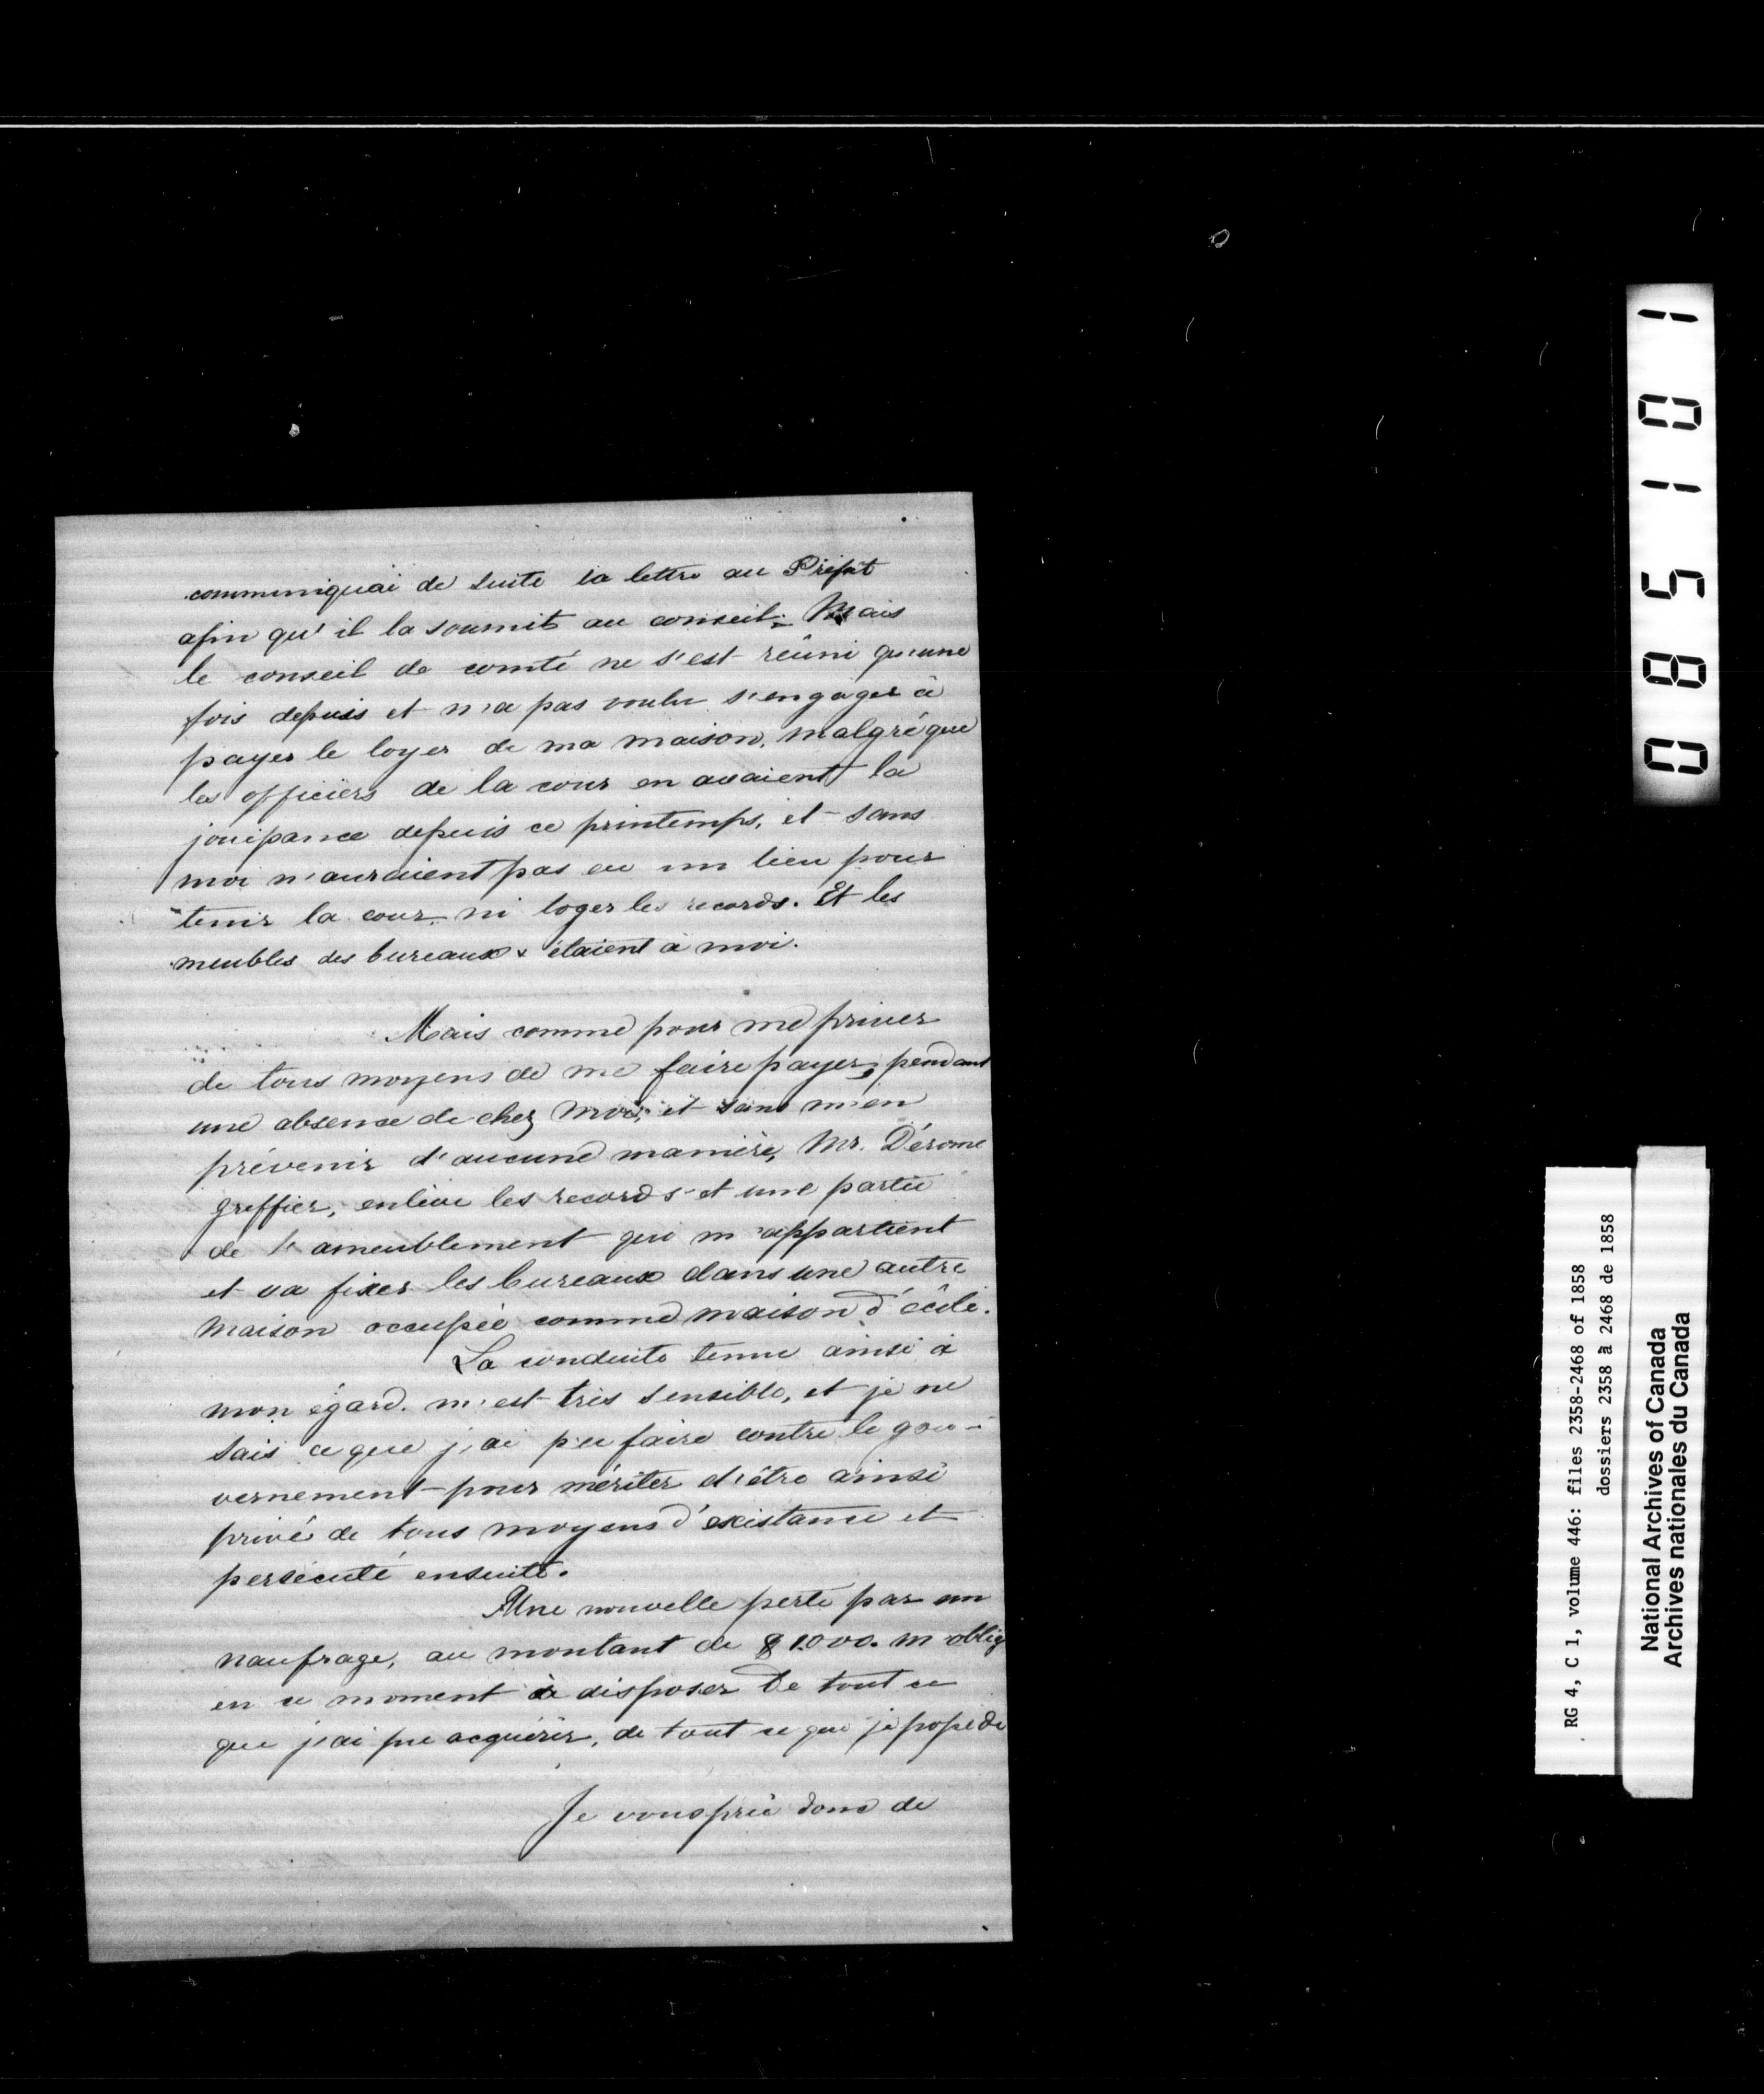 communiquai de suite la lettre au Préfet
afin qu'il la soumit au conseil; Mais
le conseil de comté ne s'est réuni qu'une
fois depuis et n'a pas voulu s'engager à
payer le loyer de ma maison, malgré que
les officiers de la cour en avaient la
jouissance depuis ce printemps, et sans
moi n'auraient pas eu un lieu pour
tenir la cour ni loger les records. Et les
meubles des bureaux étaient à moi.
Mais comme pour me priver
de tous moyens de me faire payer, pendant
une absence de chez moi, et sans m'en
prévenir d'aucune manière, Mr. Dérome
greffier, enlève les records et une partie
de l'ameublement qui m'appartient
et va fixer les bureaux dans une autre
maison occupée comme maison d'école.
La conduite tenue ainsi à
mon égard. m'est très sensible, et je ne
sais ce que j'ai pu faire contre le gou-
vernement pour mériter d'être ainsi
privé de tous moyens d'existance et
persécuté ensuite.
Une nouvelle perte par un
naufrage, au montant de $1000. m'oblig
en ce moment à disposer de tout ce
que j'ai pu acquérir, de tout ce que je possède
Je vous prie donc de
085101
RG 4, C 1, volume 446: files 2358-2468 of 1858
dossiers 2358 à 2468 de 1858
National Archives of Canada
Archives nationales du Canada